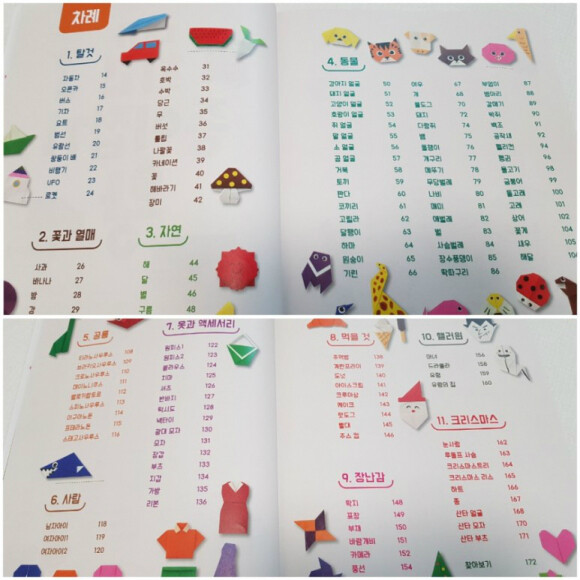 차례
1. 탈것
자동차 14
오픈카 15
버스 16
기차 17
요트 18
범선 19
유람선 20
쌍둥이 배 21
비행기 22
UFO 23
로켓 24
2. 꽃과 열매
사과 26
바나나 27
밤 28
옥수수 31
호박 32
수박 33
당근 34
무 35
버섯 36
튤립 37
나팔꽃 38
카네이션 39
꽃 40
해바라기 41
장미 42
3. 자연
해 44
달 45
별 46
구름 48
4. 동물
강아지 얼굴 50
돼지 얼굴 51
고양이 얼굴 52
호랑이 얼굴 53
쥐 얼굴 54
말 얼굴 55
소 얼굴 56
곰 얼굴 57
거북 58
토끼 59
판다 60
코끼리 61
고릴라 62
달팽이 63
하마 64
원숭이 65
기린 66
여우 67
개 68
불도그 70
돼지 72
다람쥐 74
뱀 75
76
개구리 77
메뚜기 78
무당벌레 79
나비 80
매미 81
애벌레 82
벌 83
사슴벌레 84
장수풍뎅이 85
딱따구리 86
부엉이 87
병아리 88
갈매기 89
박쥐 90
백조 91
공작새 92
펠리컨 94
펭귄 95
물고기 96
금붕어 99
돌고래 100
고래 101
상어 102
꽃게 104
새우 105
해달 106
5. 공룡
티라노사우루스 108
브라키오사우루스
스테고사우루스
6. 사람
남자아이 118
여자아이1 119
여자아이2 120
7. 옷과 액세서리
원피스1 122
원피스2 123
블라우스 124
치마 125
셔츠 126
반바지 127
턱시도 128
넥타이 129
중절 모자 130
모자 131
장갑 132
부츠 133
지갑 134
가방 135
리본 136
8. 먹을 것
주먹밥 138
계란프라이 139
도넛 140
아이스크림 141
크루아상 142
케이크 143
핫도그 144
빨대 145
주스 컵 146
9. 장난감
딱지 148
표창 149
부채 150
바람개비 151
카메라 152
풍선 154
10. 핼러윈
마녀 156
드라큘라 158
유령 159
유령의 집 160
11. 크리스마스
눈사람 162
루돌프 사슴 163
크리스마스트리 164
크리스마스 리스 165
하트 166
종 167
산타 얼굴 168
산타 모자 170
산타 부츠 171
찾아보기 172